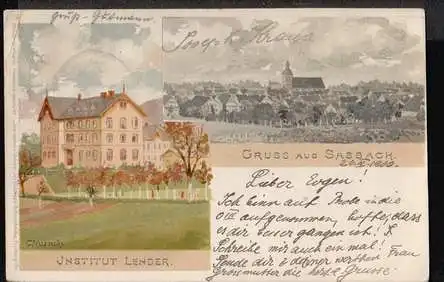 Gruß-
Joseph Kraus
GRUSS AUS SASBACH.
INSTITUT LENDER.
Lieber Eugen!
Ich bin auf Probe in die
aufgenommen, hoffe, dass
es dir gangen ist!
Schreibe mir auch ein mal!
Sende dir u. deiner werthen Frau
Grossmutter die Grüsse.